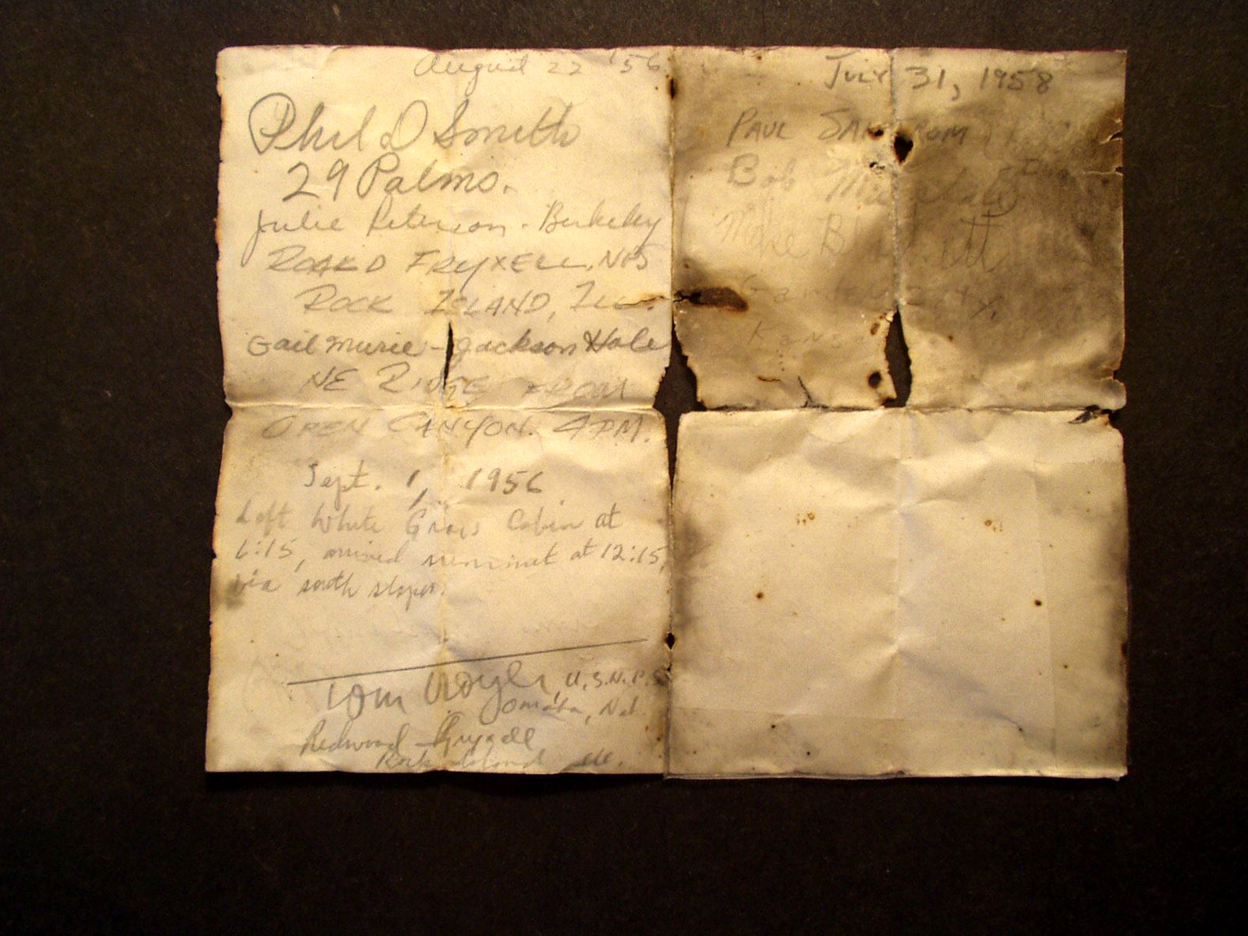 August 22 '56
Phil D Smith
29 Palms.
Julie Peterson - Berkeley
ROALD FRYXELL, NPS
ROCK ISLAND, ILL.
Gail Murie - Jackson Hole
NE RIDGE FROM
OPEN CANYON. 4PM.
Sept. 1, 1956
Left White Grass Cabin at
6:15, arrived summit at 12:15,
via south slopes.
Tom
U.S.N.P.S
Omaha, Neb.
Redwood Fryxell
Rock Island Ill.
JULY 31, 1958
PAUL
Bob
Mike